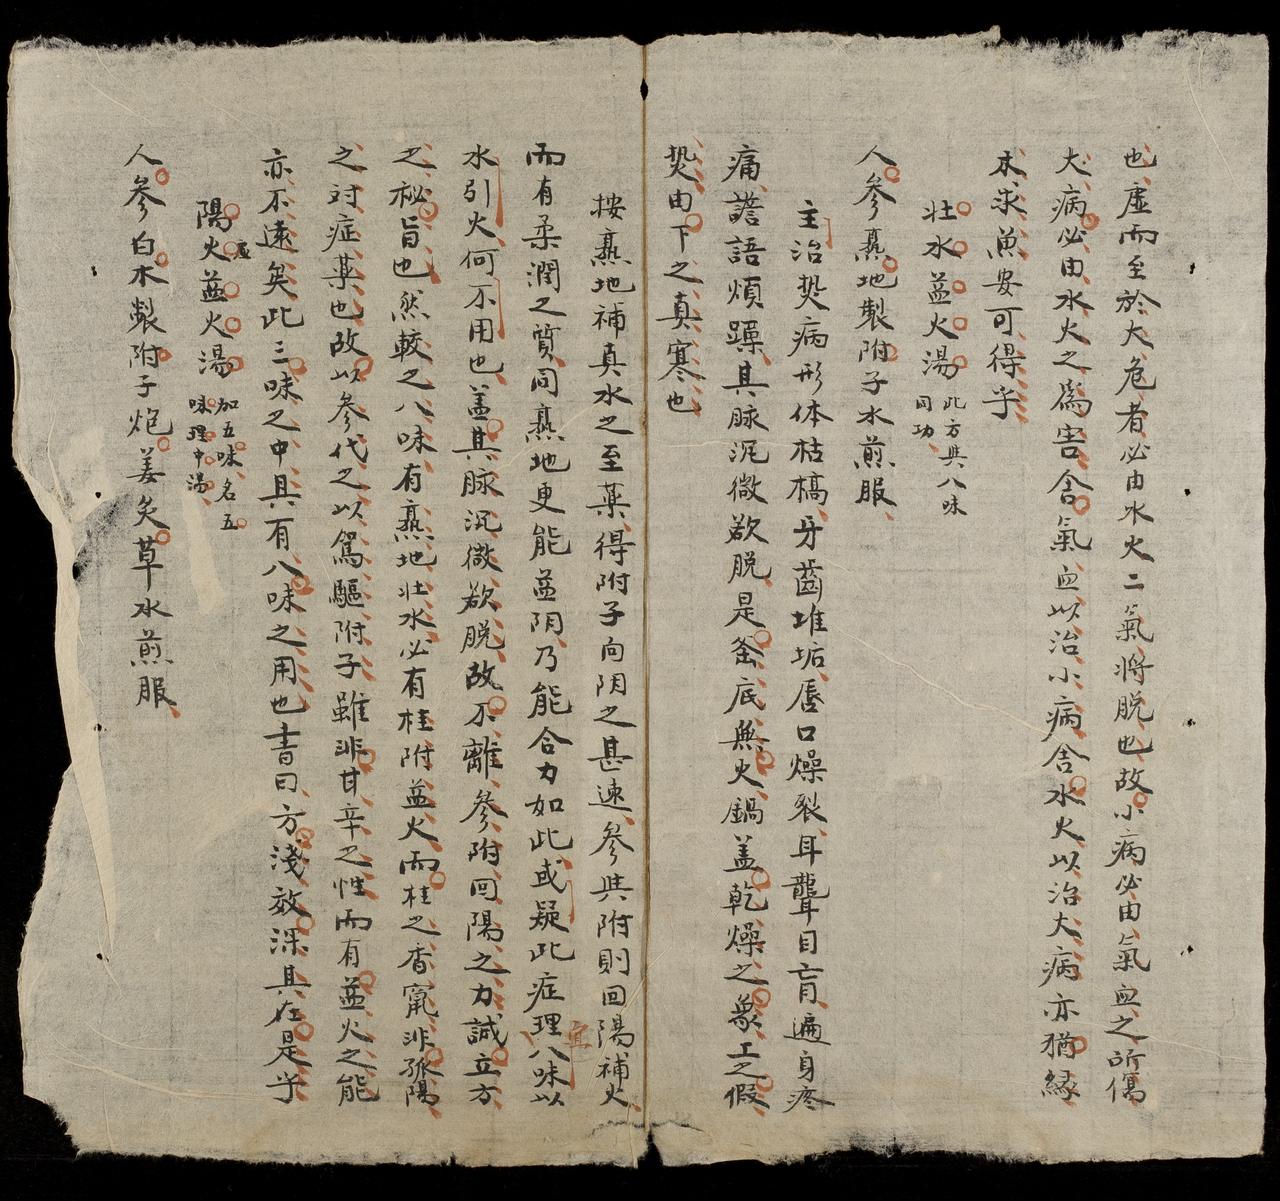 也虚而至於大危者必由水火二氣将脱也故小病必由氣血之所傷
大病必由水火之為害舍氣血以治小病舍水火以治大病亦猶緣
木求魚安可得乎
壮水益火湯 此方與八味
同功
人參熟地製附子水煎服
主治熱病形体枯槁牙齒堆垢唇口燥裂耳聾目盲遍身疼
痛譫語煩躁其脉沉微欲脱是釜底無火鍋盖乾燥之象上之假
熱由下之真寒也
按熟地補真水之至薬得附子向阴之甚速參與附則回陽補火
而有柔潤之質同熟地更能益阴乃能合力如此或疑此症理宜八味以
水引火何不用也盖其脉沉微欲脱故不離參附回陽之力誠立方
之秘旨也然較之八味有熟地壮水必有桂附益火而桂之香竄非孤陽
之対症薬也故以參代之以駕驅附子雖非甘辛之性而有益火之能
亦不遠矣此三味之中具有八味之用也書曰方淺效深其在是乎
陽火益火湯 加五味名五
味理中湯
人參白术製附子炮姜炙草水煎服